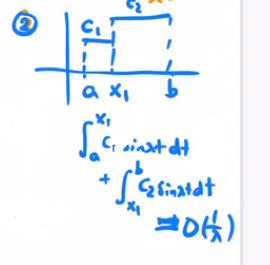 ②
C₂
C₁
a x₁ b
∫ₐ^x₁ C₁ sinλt dt
+ ∫_x₁^b C₂ sinλt dt
⇒ O(1/λ)